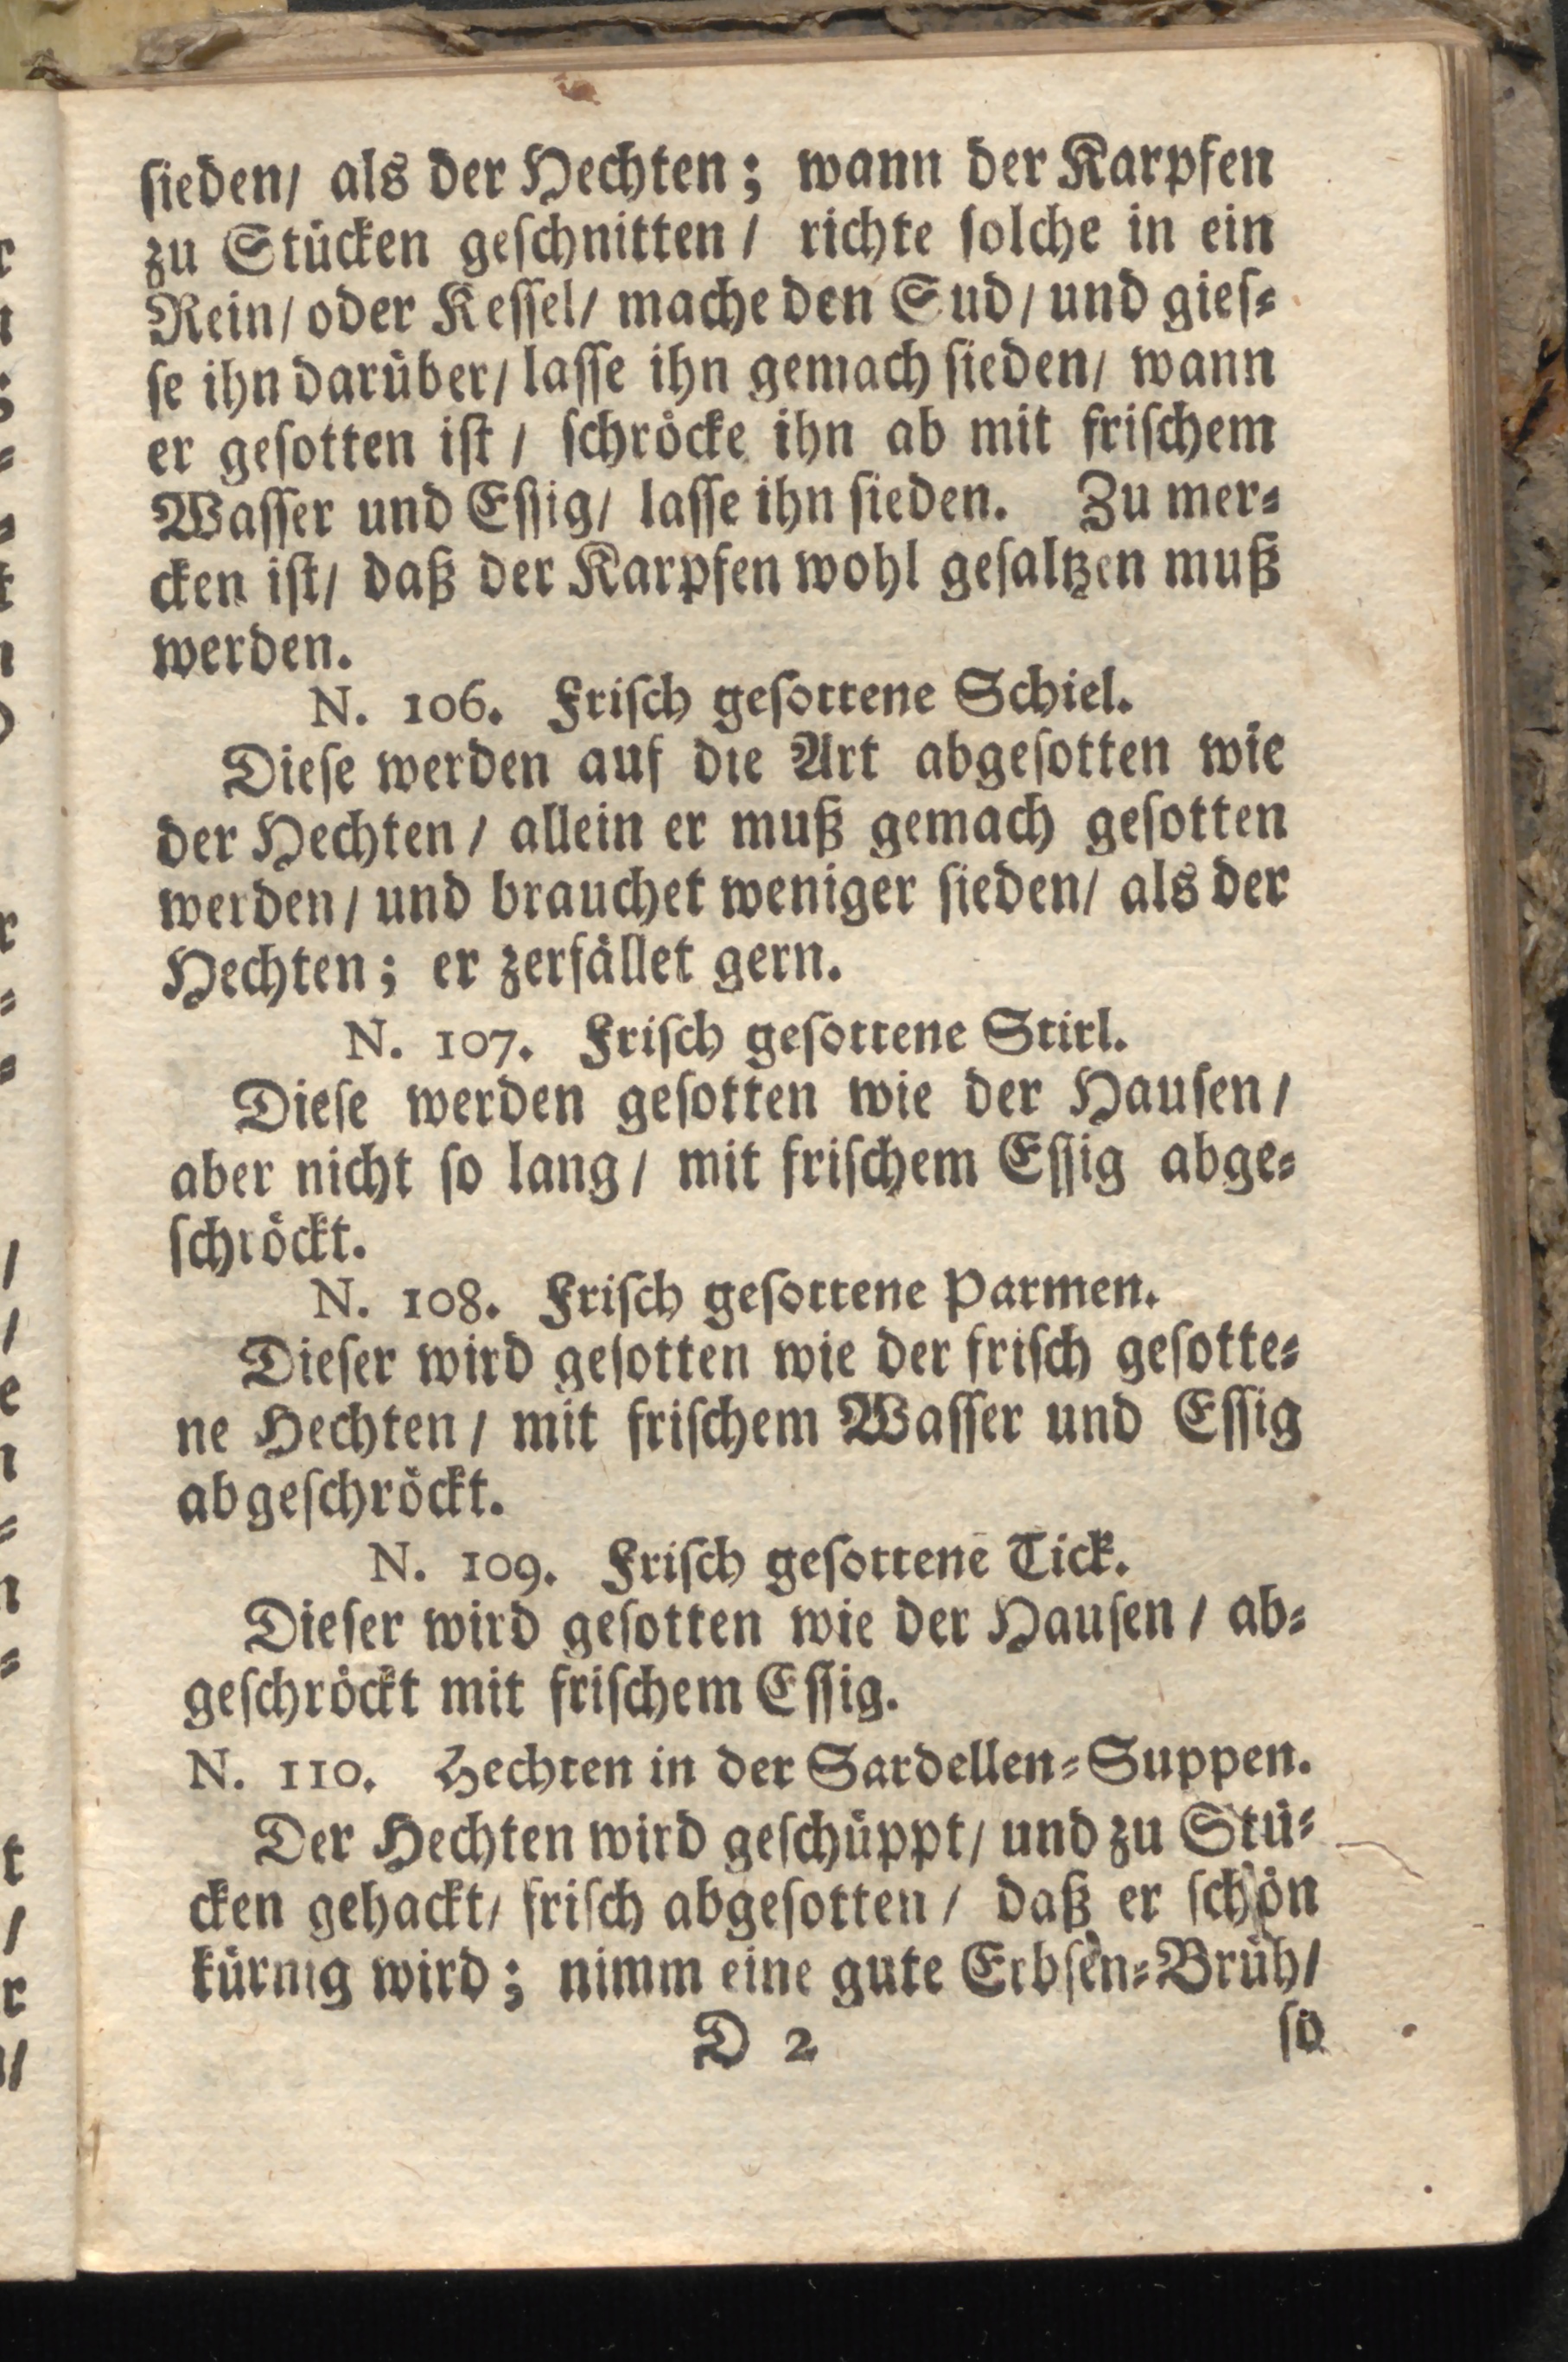 sieden/ als der Hechten; wann der Karpfen
zu Stücken geschnitten / richte solche in ein
Rein/ oder Kessel/ mache den Sud/ und gies-
se ihn darüber/ lasse ihn gemach sieden/ wann
er gesotten ist / schröcke ihn ab mit frischem
Wasser und Essig/ lasse ihn sieden. Zu mer-
cken ist/ daß der Karpfen wohl gesaltzen muß
werden.
N. 106. Frisch gesottene Schiel.
Diese werden auf die Art abgesotten wie
der Hechten / allein er muß gemach gesotten
werden / und brauchet weniger sieden/ als der
Hechten; er zerfället gern.
N. 107. Frisch gesottene Stirl.
Diese werden gesotten wie der Hausen /
aber nicht so lang / mit frischem Essig abge-
schröckt.
N. 108. Frisch gesottene Parmen.
Dieser wird gesotten wie der frisch gesotte-
ne Hechten / mit frischem Wasser und Essig
abgeschröckt.
N. 109. Frisch gesottene Tick.
Dieser wird gesotten wie der Hausen / ab-
geschröckt mit frischem Essig.
N. 110. Hechten in der Sardellen-Suppen.
Der Hechten wird geschüppt/ und zu Stü-
cken gehackt/ frisch abgesotten / daß er schön
kürnig wird; nimm eine gute Erbsen-Brüh/
D 2
so